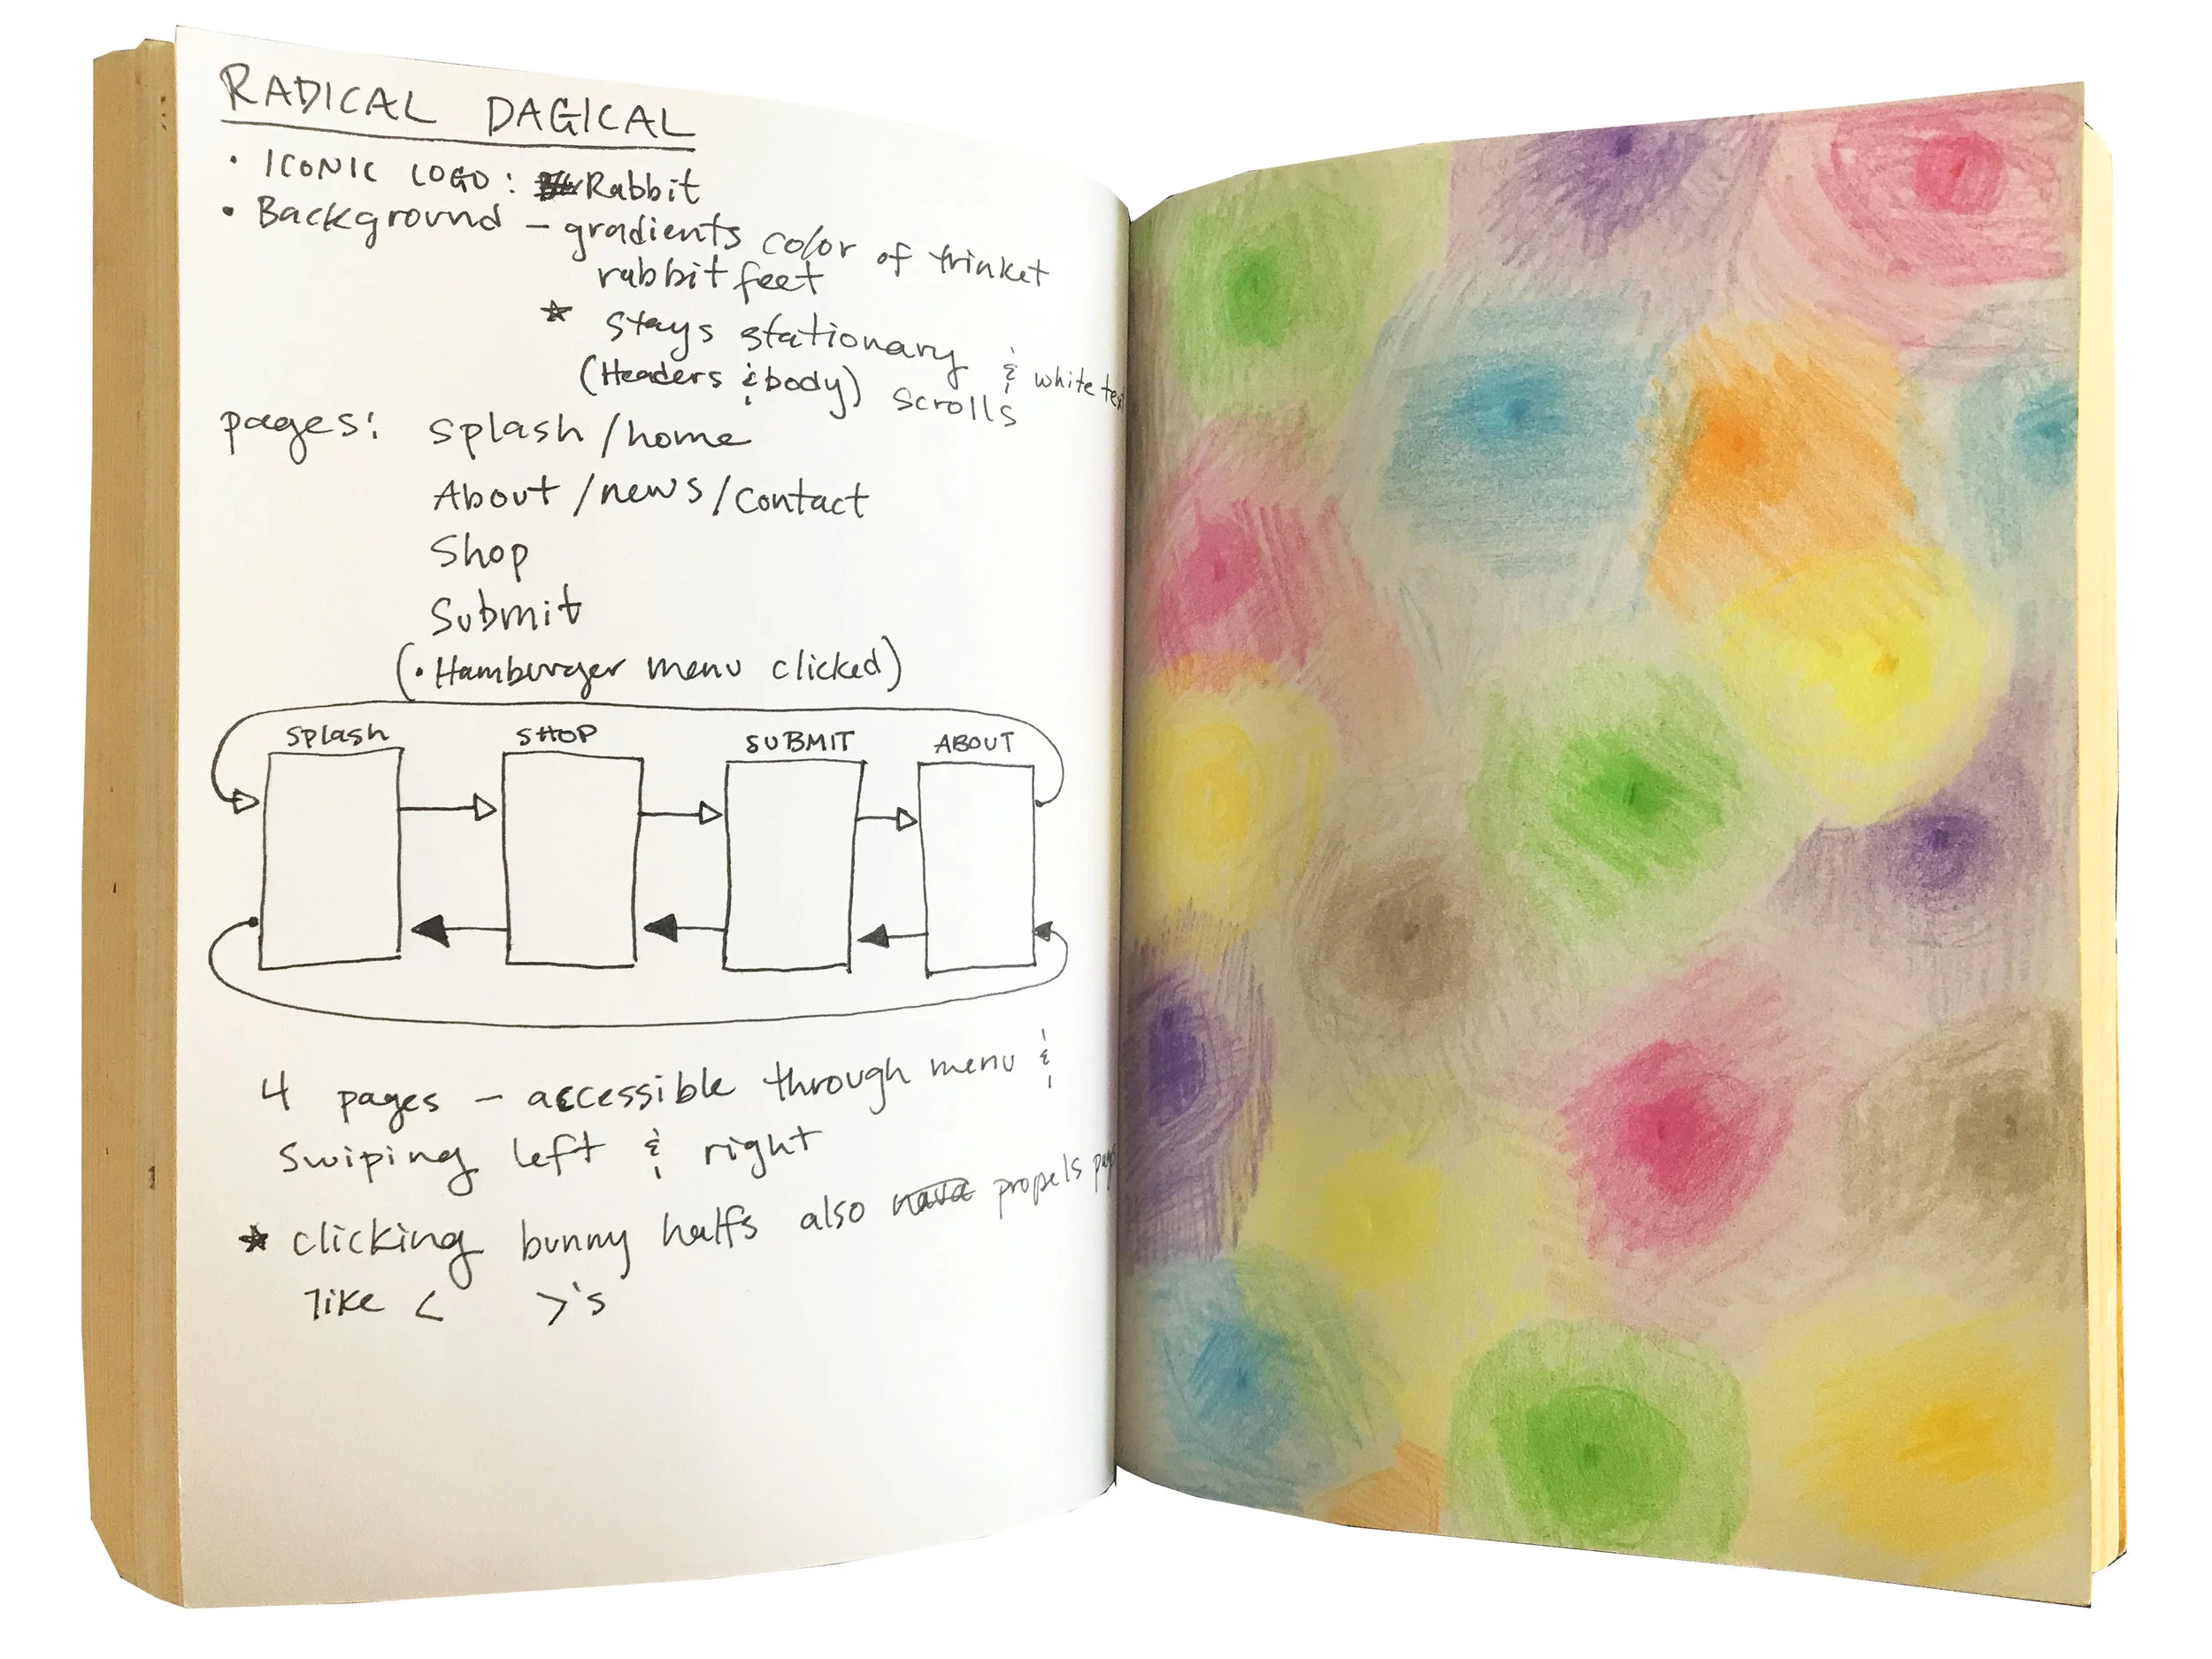 RADICAL DAGICAL
• ICONIC LOGO: Rabbit
• Background – gradients color of trinket
rabbit feet
* stays stationary & white
(Headers & body) scrolls
pages: splash/home
About/news/contact
Shop
Submit
(• Hamburger menu clicked)
SPLASH SHOP SUBMIT ABOUT
4 pages – accessible through menu &
swiping left & right
* clicking bunny halfs also propels
like < >'s